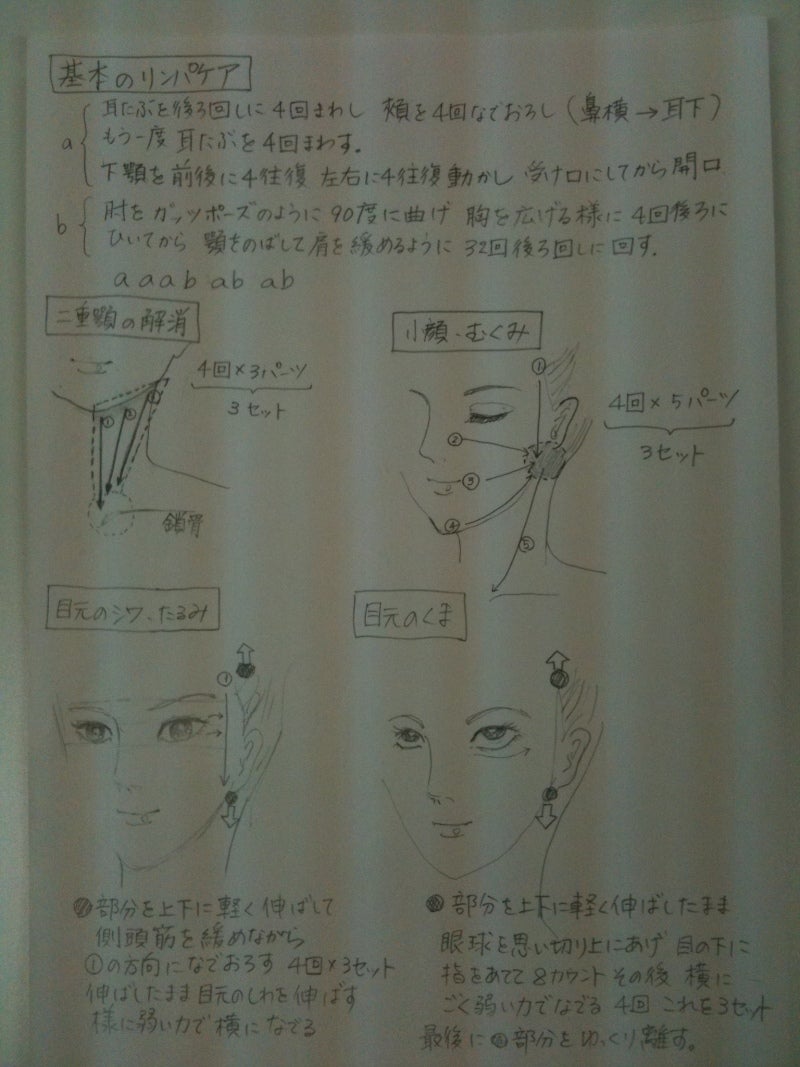 基本のリンパケア
a
耳たぶを後ろ回しに4回まわし 頬を4回なでおろし(鼻横→耳下)
もう一度 耳たぶを4回まわす.
下顎を前後に4往復 左右に4往復動かし 受け口にしてから開口
b
肘をガッツポーズのように90度に曲げ 胸を広げる様に4回後ろに
ひいてから 顎をのばして肩を緩めるように 32回後ろ回しに回す.
a a a b a b a b
二重顎の解消
4回×3パーツ
3セット
① ② ③
鎖骨
小顔、むくみ
①
②
③
④
⑤
4回×5パーツ
3セット
目元のシワ、たるみ
①
部分を上下に軽く伸ばして
側頭筋を緩めながら
①の方向になでおろす 4回×3セット
伸ばしたまま目元のしわを伸ばす
様に弱い力で横になでる
目元のくま
部分を上下に軽く伸ばしたまま
眼球を思い切り上にあげ 目の下に
指をあてて8カウント その後 横に
ごく弱い力でなでる 4回 これを3セット
最後に 部分をゆっくり離す。